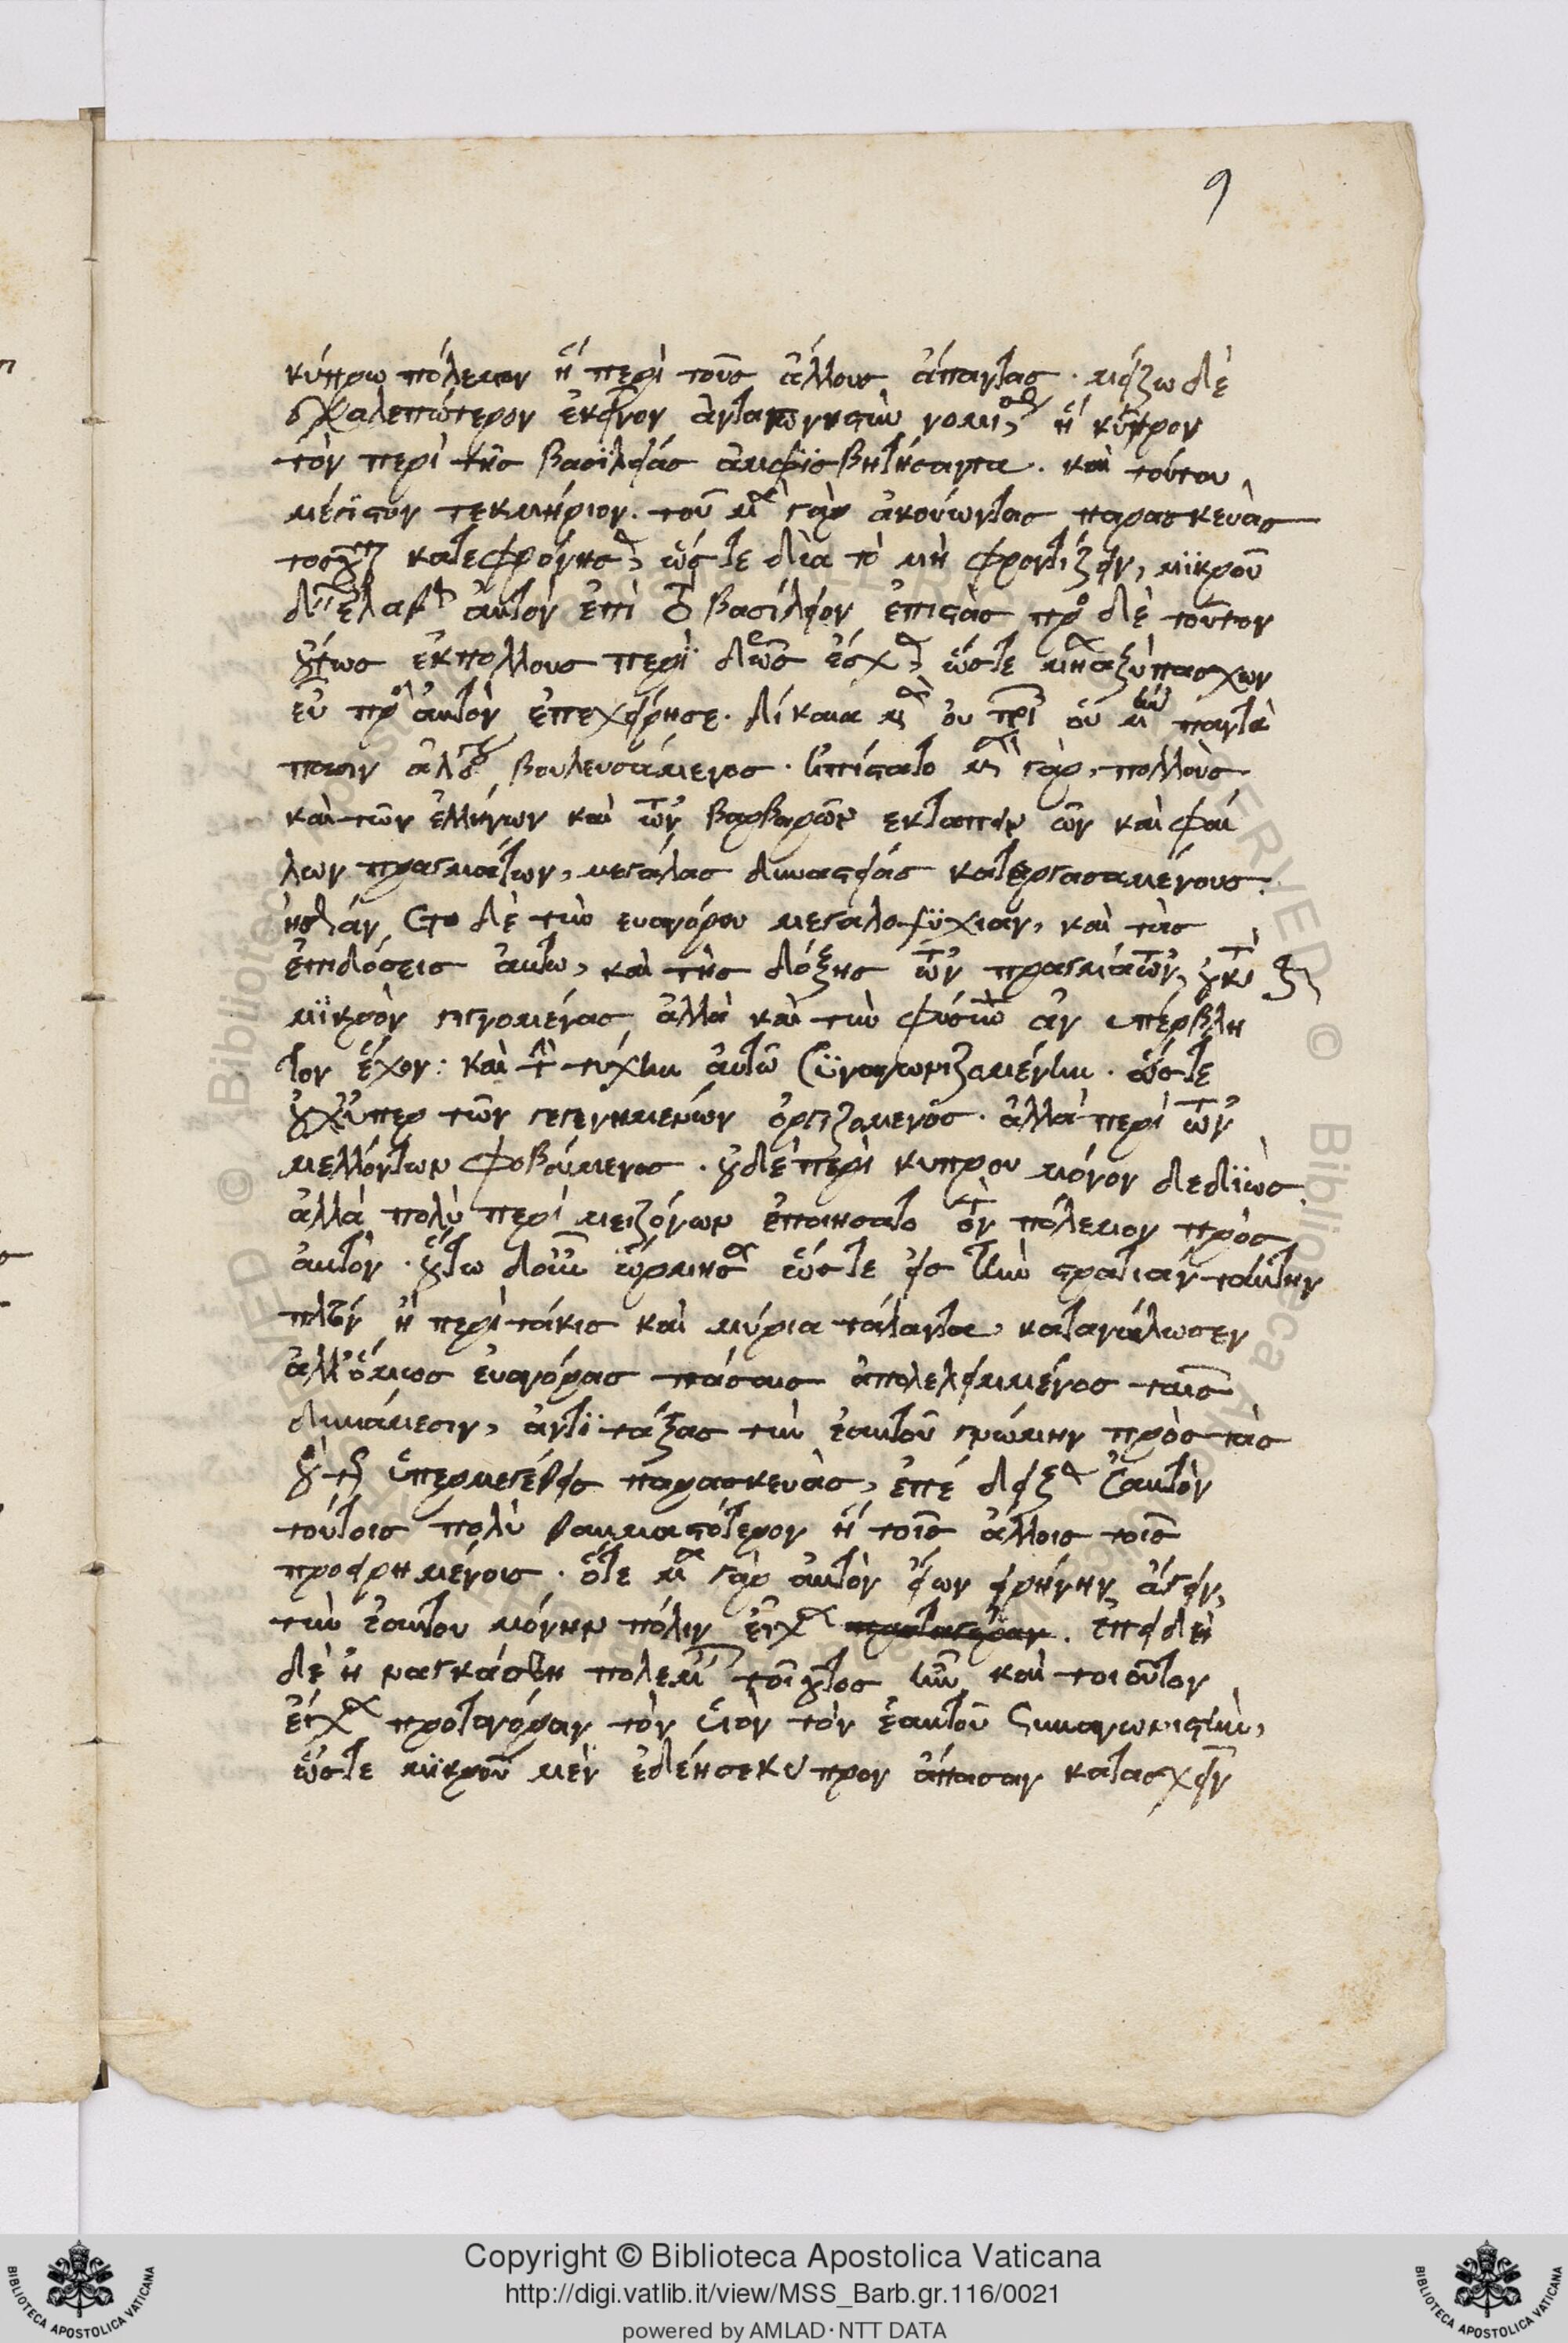 9
κύπρω πόλεμον ἢ περὶ τοὺς ἄλλους ἅπαντας · μείζω δὲ
χαλεπώτερον ἐκεῖνον ἀνταγωνιστὴν νομίσας ἢ κῦρον
τὸν περὶ τῆς βασϊλείας ἀμφϊσβητήσαντα. καὶ τούτου
μέγϊστον τεκμήριον. τοῦ μὲν γὰρ ἀκούωντας παρασκευὰς
τοσοῦτον κατεφρόνησεν, ὥστε δϊα τὸ μὴ φροντίζειν, μϊκροῦ
δεῖν ἔλαθεν αὐτὸν ἐπὶ τὸ βασίλειον ἐπιστὰς πρὸς δὲ τοῦτον
οὕτως ἐκπολλους περϊ δεῶς ἔσχεν, ὥστε μεταξὺπασχων
εὖ πρὸς αὐτὸν ἐπεχείρησε. δίκαια μὲν ου ποιεῖν οὐ μὴν παντὰ
πασιν ἀλόγως βουλευσάμενος. ἠπίστατο μὲν γὰρ, πολλοὺς
καὶ τῶν ἑλλήνων καὶ τῶν βαρβαρῶν εκταπειν ῶν καὶ φαύ
λων πραγμάτων, μεγάλας δυναστείας κατεργασαμένους.
ἠσθάνετο δὲ τὴν ευαγόρου μεγαλοψϋχιαν, καὶ τὰς
ἐπιδόσεις αὐτω, καὶ τῆς δόξης τῶν πραγμάτων, οὐκατὰ
μϊκρὸν γιγνομένας ἀλλὰ καὶ τὴν φύσιν ἀν υπέρβλη
τον ἔχον: καὶ τὴν τύχην αὐτῶ συναγωνιζαμένην. ὥστε
οὐχὑπερ τῶν γεγενημενων ὀργιζομενος. ἀλλὰ περὶ τῶν
μελλόντων φοβούμενος. οὐδὲ περὶ κυπρου μόνον δεδϊὼς
ἀλλὰ πολὺ περὶ μειζόνων ἐποιησατο τὸν πόλεμον πρὸς
αὐτὸν. οὕτω δοῦν ὥρμησεν ὥστε εἰς τὴν στρατιὰν ταύτην
πλέον ἢ περὶ τάκις καὶ μύρια τάλαντα, κατανάλωσεν
ἀλλ'ὅμως ἐυαγόρας πάσαις ἀπολελειμμένος ταῖς
δυνάμεσιν, ἀντϊτάξας τὴν ἑαυτοῦ γνώμην πρὸς τὰς
οὕτως ὑπερμεγέθεις παρασκευὰς, ἐπέ δειξεν αὐτὸν
τούτοις πολὺ θαυμαστότερον ἢ τοῖς ἄλλοις τοῖς
προειρημένοις. ὅτε μὲν γὰρ αὐτὸν εἴων εἰρήνην ἄγειν,
τὴν ἑαυτου μόνην πόλιν εἶχεν. ἐπειδὴ
δὲ ἠ ναγκάσθη πολεμεῖν τοιοῦτος ἦν καὶ τοιοῦτον
εἶχεν πρωταγόραν τὸν ὑιὸν τὸν ἑαυτοῦ συναγωνιστὴν,
ὥστε μϊκροῦ μὲν ἐδέησεκυπρον ἅπασαν κατασχεῖν
Copyright © Biblioteca Apostolica Vaticana
http://digi.vatlib.it/view/MSS_Barb.gr.116/0021
powered by AMLAD · NTT DATA